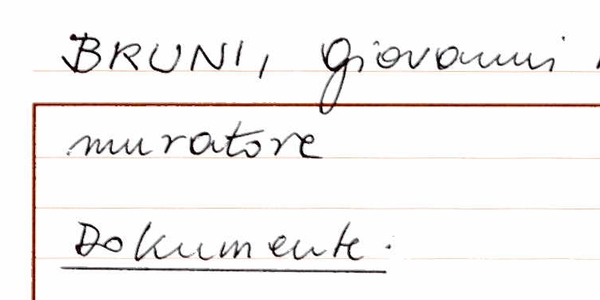 BRUNI, Giovanni
muratore
Dokumente.